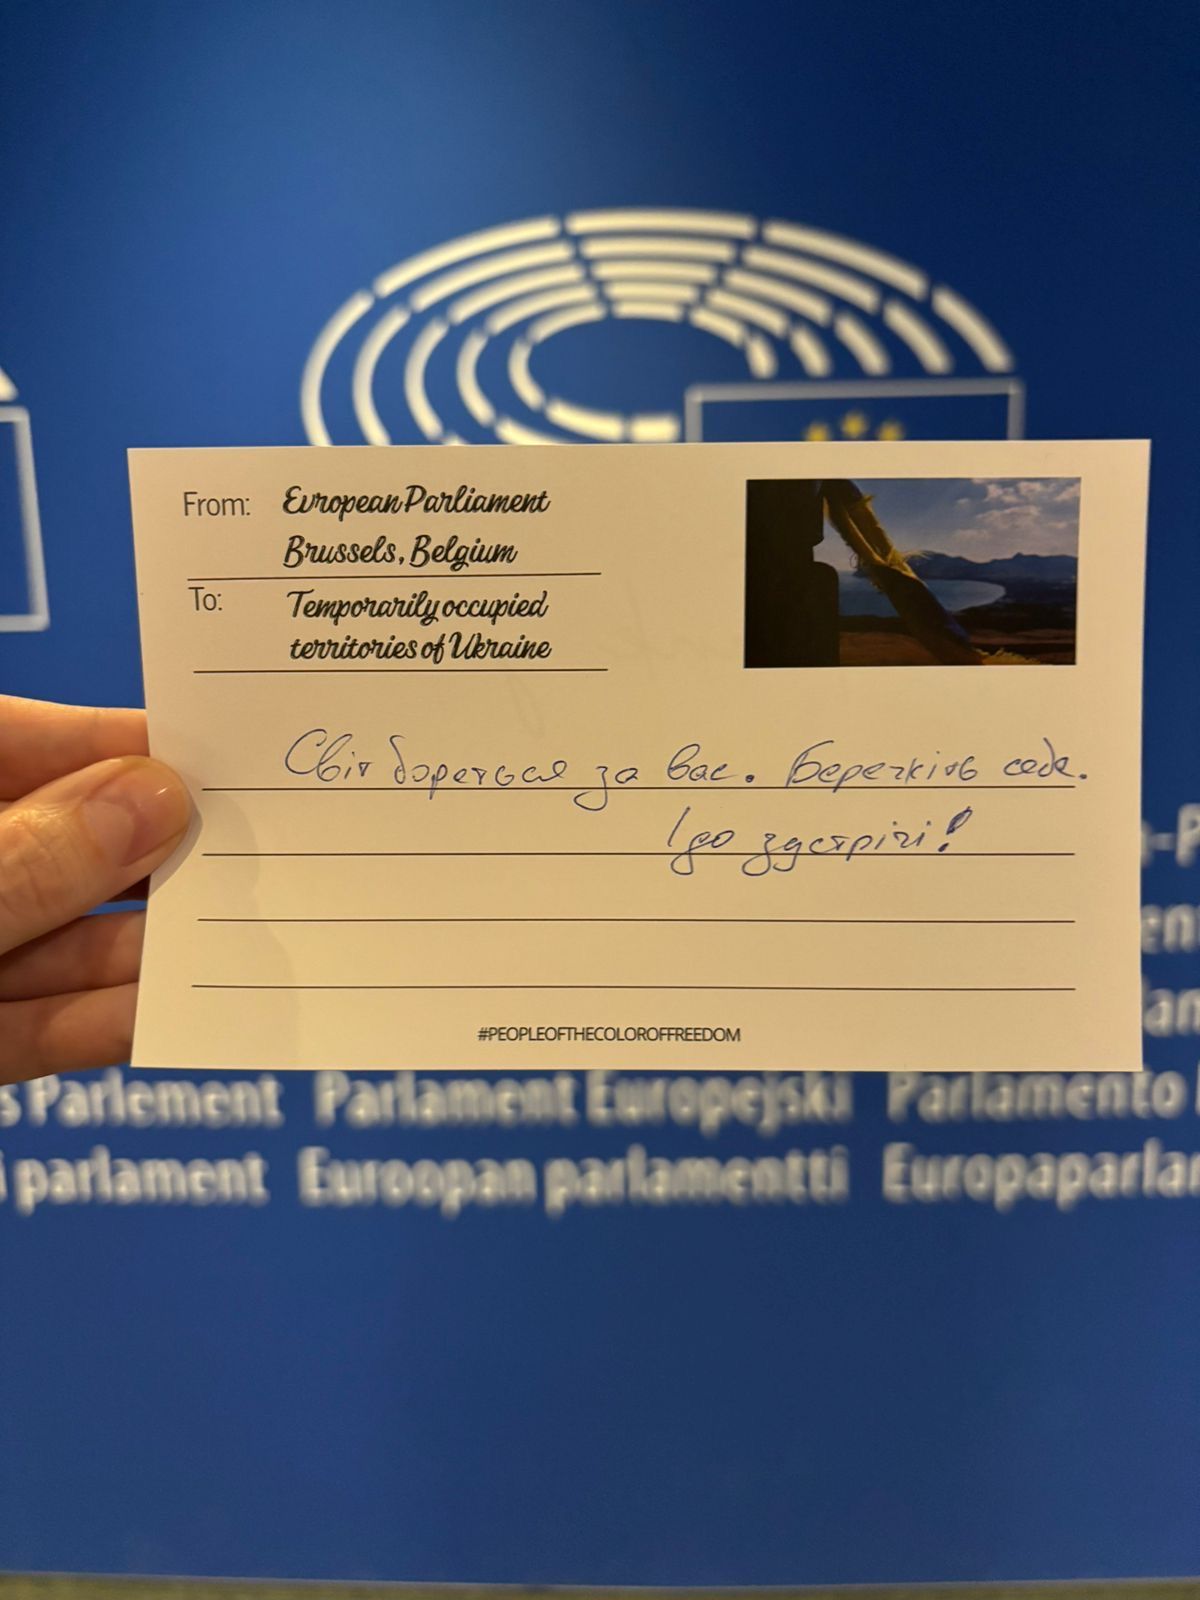 From: European Parliament
Brussels, Belgium
To: Temporarily occupied
territories of Ukraine
Світ бореться за вас. Бережіть себе.
І до зустрічі!
#PEOPLEOFTHECOLOROFFREEDOM
Parlement Parlament Europejski Parlamento
parlament Euroopan parlamentti